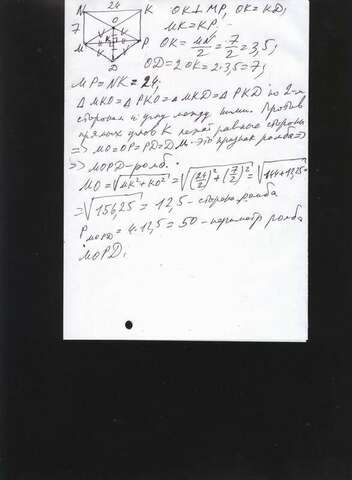 N 24 K OK⊥MP, OK=KD,
7 O MK=KP.
M K P OK=MN/2=7/2=3,5;
D OD=2OK=2·3,5=7;
MP=NK=24;
ΔMKO=ΔPKO=ΔMKD=ΔPKD по 2-м
сторонам и углу между ними. Против
прямых углов K лежат равные стороны
=> MO=OP=PD=DM-это признак ромба=>
=> MOPD-ромб.
MO=√MK²+KO²=√(24/2)²+(7/2)²=√144+12,25=
=√156,25=12,5-сторона ромба
P MOPD=4·12,5=50-периметр ромба
MOPD.